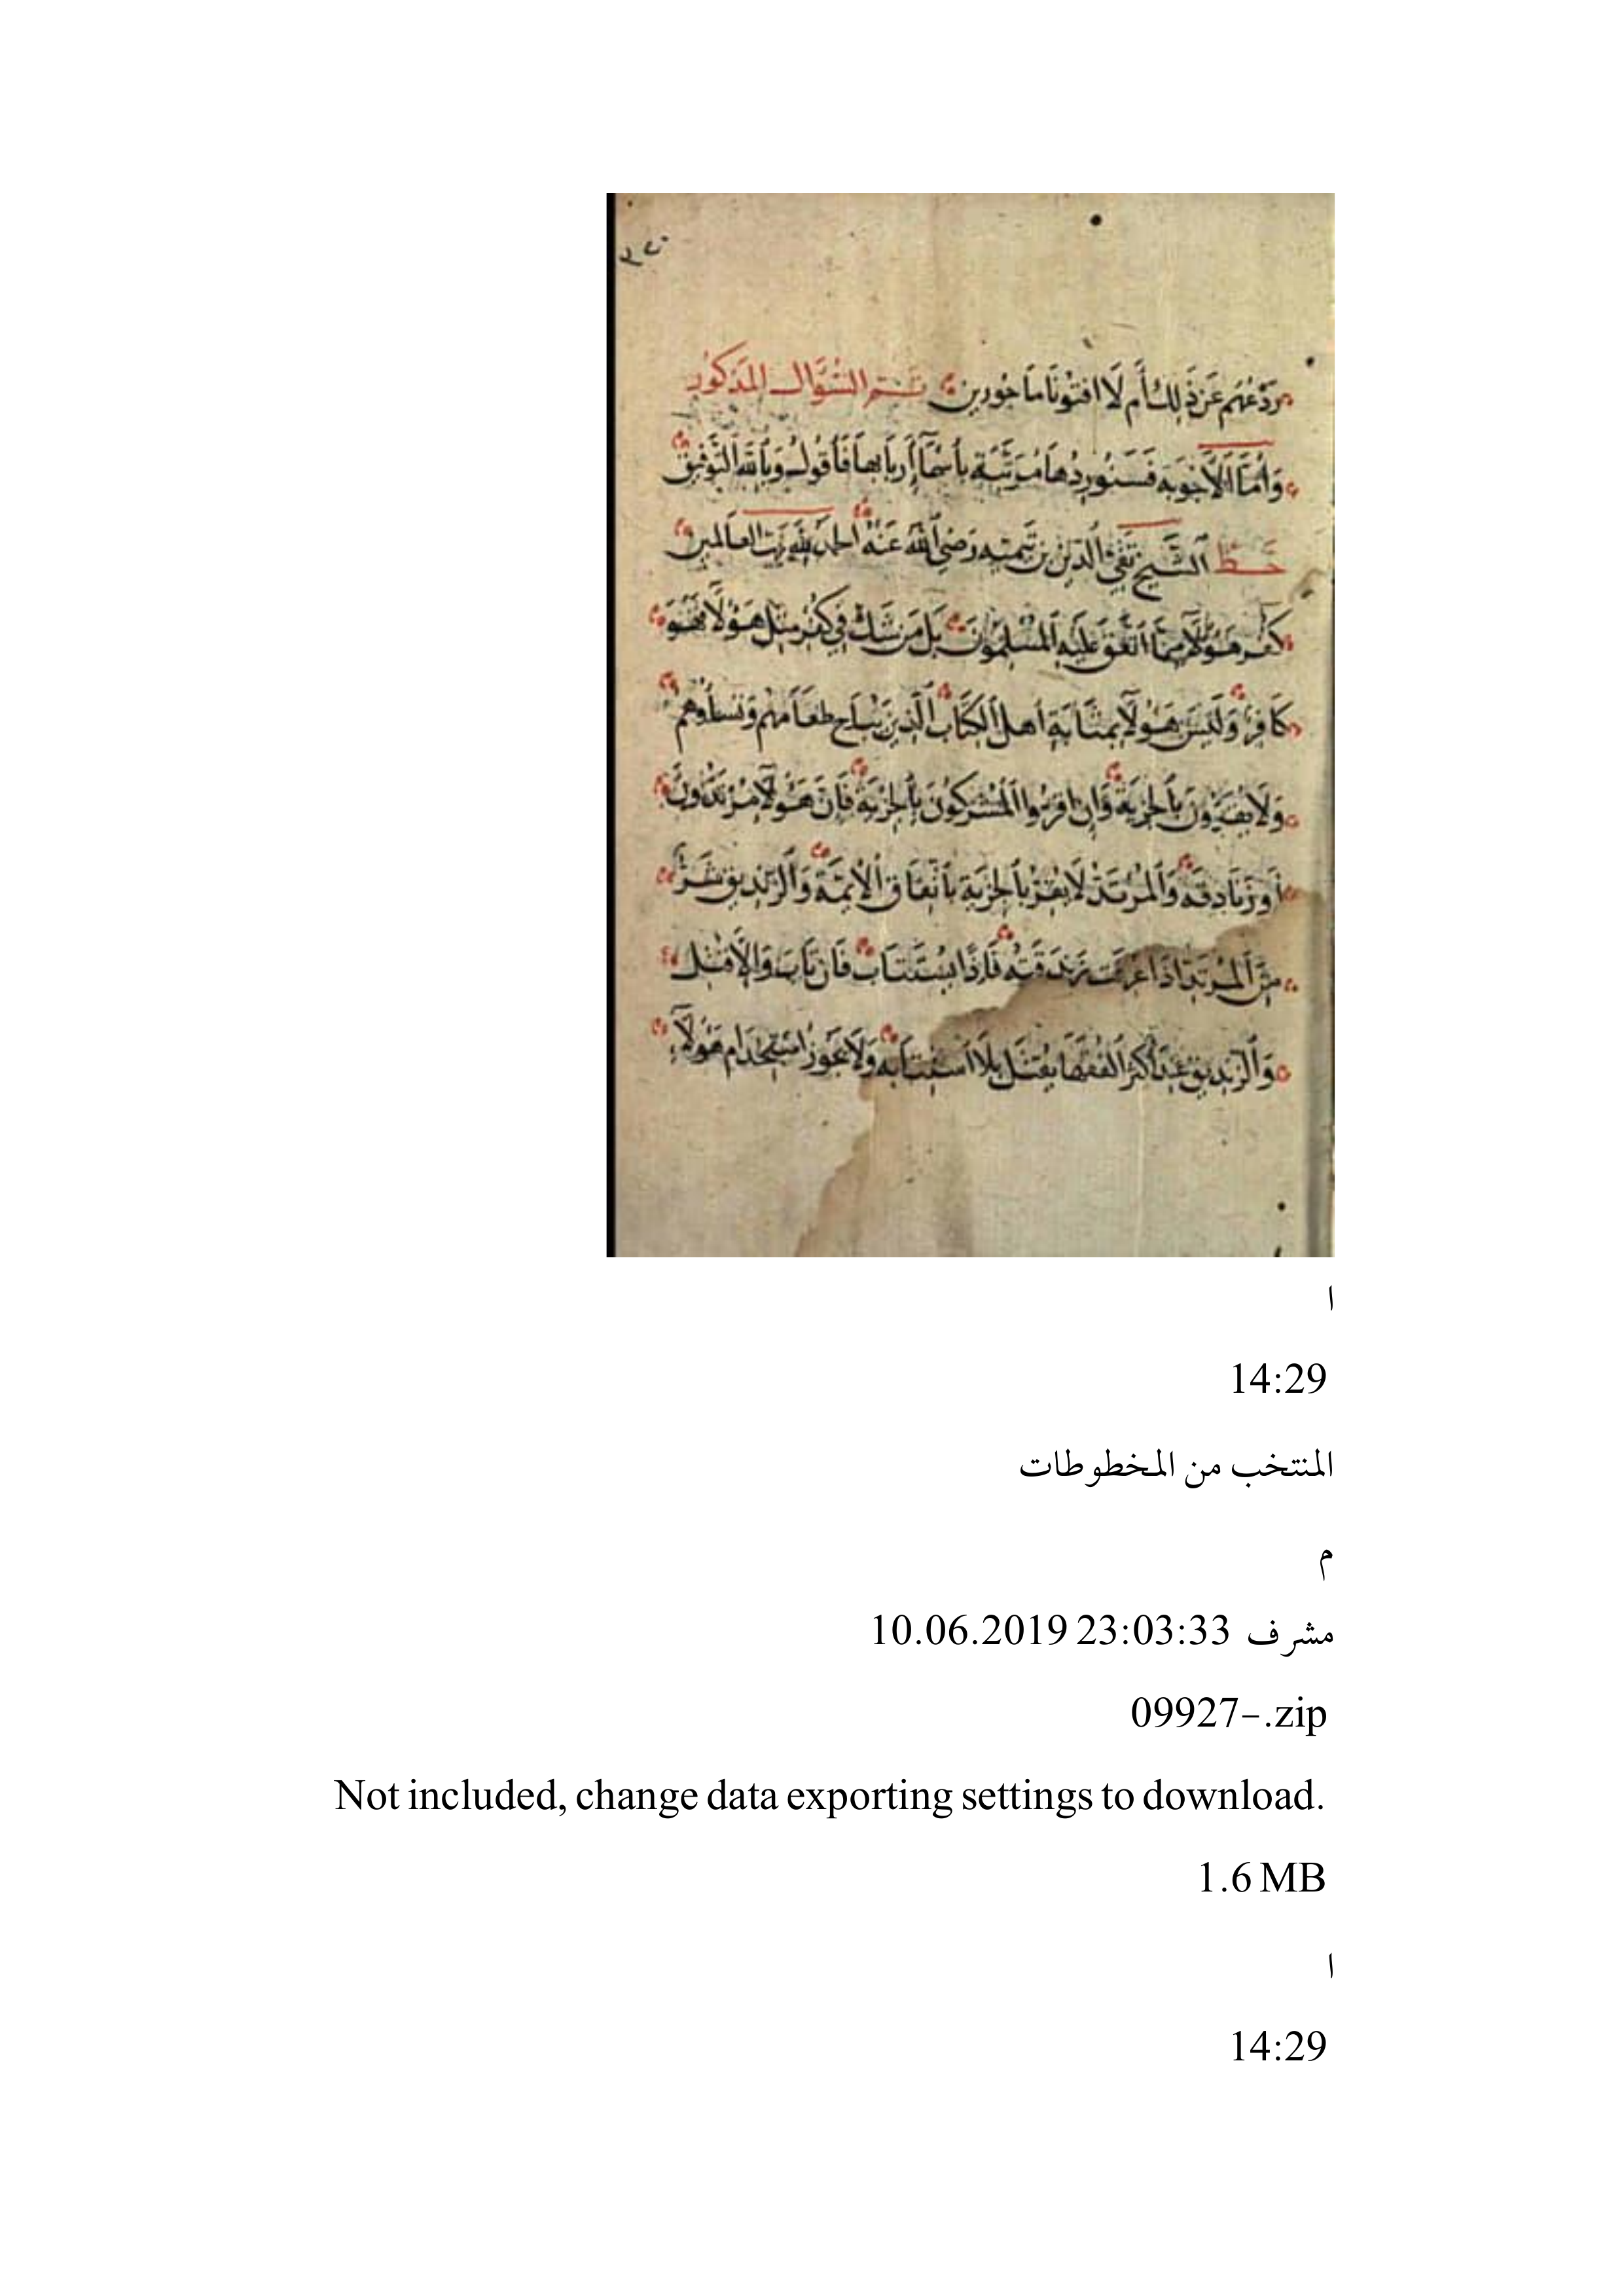 ردعهم عن ذلك أم لا افتونا ماجورين تم السؤال المذكور
وأما الأجوبة فسنوردها مرتبة بأسماء أربابها فأقول وبالله التوفيق
خط الشيخ تقي الدين بن تيمية رضي الله عنه الحمد لله رب العالمين
كفر هؤلاء مما اتفق عليه المسلمون بل من شك في كفر مثل هؤلاء فهو
كافر وليس هؤلاء بمثابة أهل الكتاب الذين يباح طعامهم ونساؤهم
ولا يقرون بالجزية وإن اقروا المشركون بالجزية فإن هؤلاء مرتدون
أو زنادقة والمرتد لا يقر بالجزية باتفاق الأئمة والزنديق شر
من المرتد اذا عرفت زندقته فإذا يستتاب فان تاب وإلا قتل
والزنديق عند أكثر الفقها يقتل بلا استتابة ولا يجوز استخدام هؤلاء
ا
14:29
المنتخب من المخطوطات
م
مشرف 10.06.2019 23:03:33
09927-.zip
Not included, change data exporting settings to download.
1.6 MB
ا
14:29